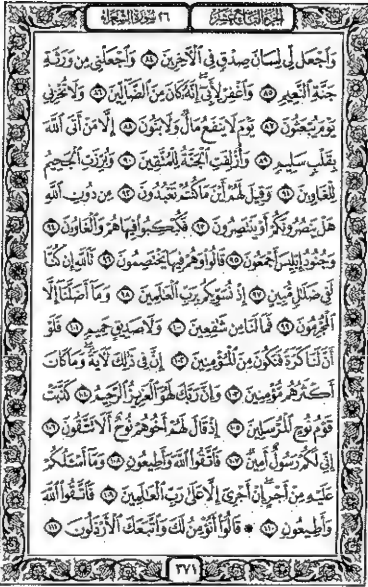 الجزء التاسع عشر ٢٦ سورة الشعراء
وَٱجۡعَل لِّي لِسَانَ صِدۡقٖ فِي ٱلۡأٓخِرِينَ ٨٤ وَٱجۡعَلۡنِي مِن وَرَثَةِ
جَنَّةِ ٱلنَّعِيمِ ٨٥ وَٱغۡفِرۡ لِأَبِيٓ إِنَّهُۥ كَانَ مِنَ ٱلضَّآلِّينَ ٨٦ وَلَا تُخۡزِنِي
يَوۡمَ يُبۡعَثُونَ ٨٧ يَوۡمَ لَا يَنفَعُ مَالٞ وَلَا بَنُونَ ٨٨ إِلَّا مَنۡ أَتَى ٱللَّهَ
بِقَلۡبٖ سَلِيمٖ ٨٩ وَأُزۡلِفَتِ ٱلۡجَنَّةُ لِلۡمُتَّقِينَ ٩٠ وَبُرِّزَتِ ٱلۡجَحِيمُ
لِلۡغَاوِينَ ٩١ وَقِيلَ لَهُمۡ أَيۡنَ مَا كُنتُمۡ تَعۡبُدُونَ ٩٢ مِن دُونِ ٱللَّهِ
هَلۡ يَنصُرُونَكُمۡ أَوۡ يَنتَصِرُونَ ٩٣ فَكُبۡكِبُواْ فِيهَا هُمۡ وَٱلۡغَاوُۥنَ ٩٤
وَجُنُودُ إِبۡلِيسَ أَجۡمَعُونَ ٩٥ قَالُواْ وَهُمۡ فِيهَا يَخۡتَصِمُونَ ٩٦ تَٱللَّهِ إِن كُنَّا
لَفِي ضَلَٰلٖ مُّبِينٍ ٩٧ إِذۡ نُسَوِّيكُم بِرَبِّ ٱلۡعَٰلَمِينَ ٩٨ وَمَآ أَضَلَّنَآ إِلَّا
ٱلۡمُجۡرِمُونَ ٩٩ فَمَا لَنَا مِن شَٰفِعِينَ ١٠٠ وَلَا صَدِيقٍ حَمِيمٖ ١٠١ فَلَوۡ
أَنَّ لَنَا كَرَّةٗ فَنَكُونَ مِنَ ٱلۡمُؤۡمِنِينَ ١٠٢ إِنَّ فِي ذَٰلِكَ لَأٓيَةٗۖ وَمَا كَانَ
أَكۡثَرُهُم مُّؤۡمِنِينَ ١٠٣ وَإِنَّ رَبَّكَ لَهُوَ ٱلۡعَزِيزُ ٱلرَّحِيمُ ١٠٤ كَذَّبَتۡ
قَوۡمُ نُوحٍ ٱلۡمُرۡسَلِينَ ١٠٥ إِذۡ قَالَ لَهُمۡ أَخُوهُمۡ نُوحٌ أَلَا تَتَّقُونَ ١٠٦
إِنِّي لَكُمۡ رَسُولٌ أَمِينٞ ١٠٧ فَٱتَّقُواْ ٱللَّهَ وَأَطِيعُونِ ١٠٨ وَمَآ أَسۡـَٔلُكُمۡ
عَلَيۡهِ مِنۡ أَجۡرٍۖ إِنۡ أَجۡرِيَ إِلَّا عَلَىٰ رَبِّ ٱلۡعَٰلَمِينَ ١٠٩ فَٱتَّقُواْ ٱللَّهَ
وَأَطِيعُونِ ١١٠ ۞ قَالُوٓاْ أَنُؤۡمِنُ لَكَ وَٱتَّبَعَكَ ٱلۡأَرۡذَلُونَ ١١١
٣٧١